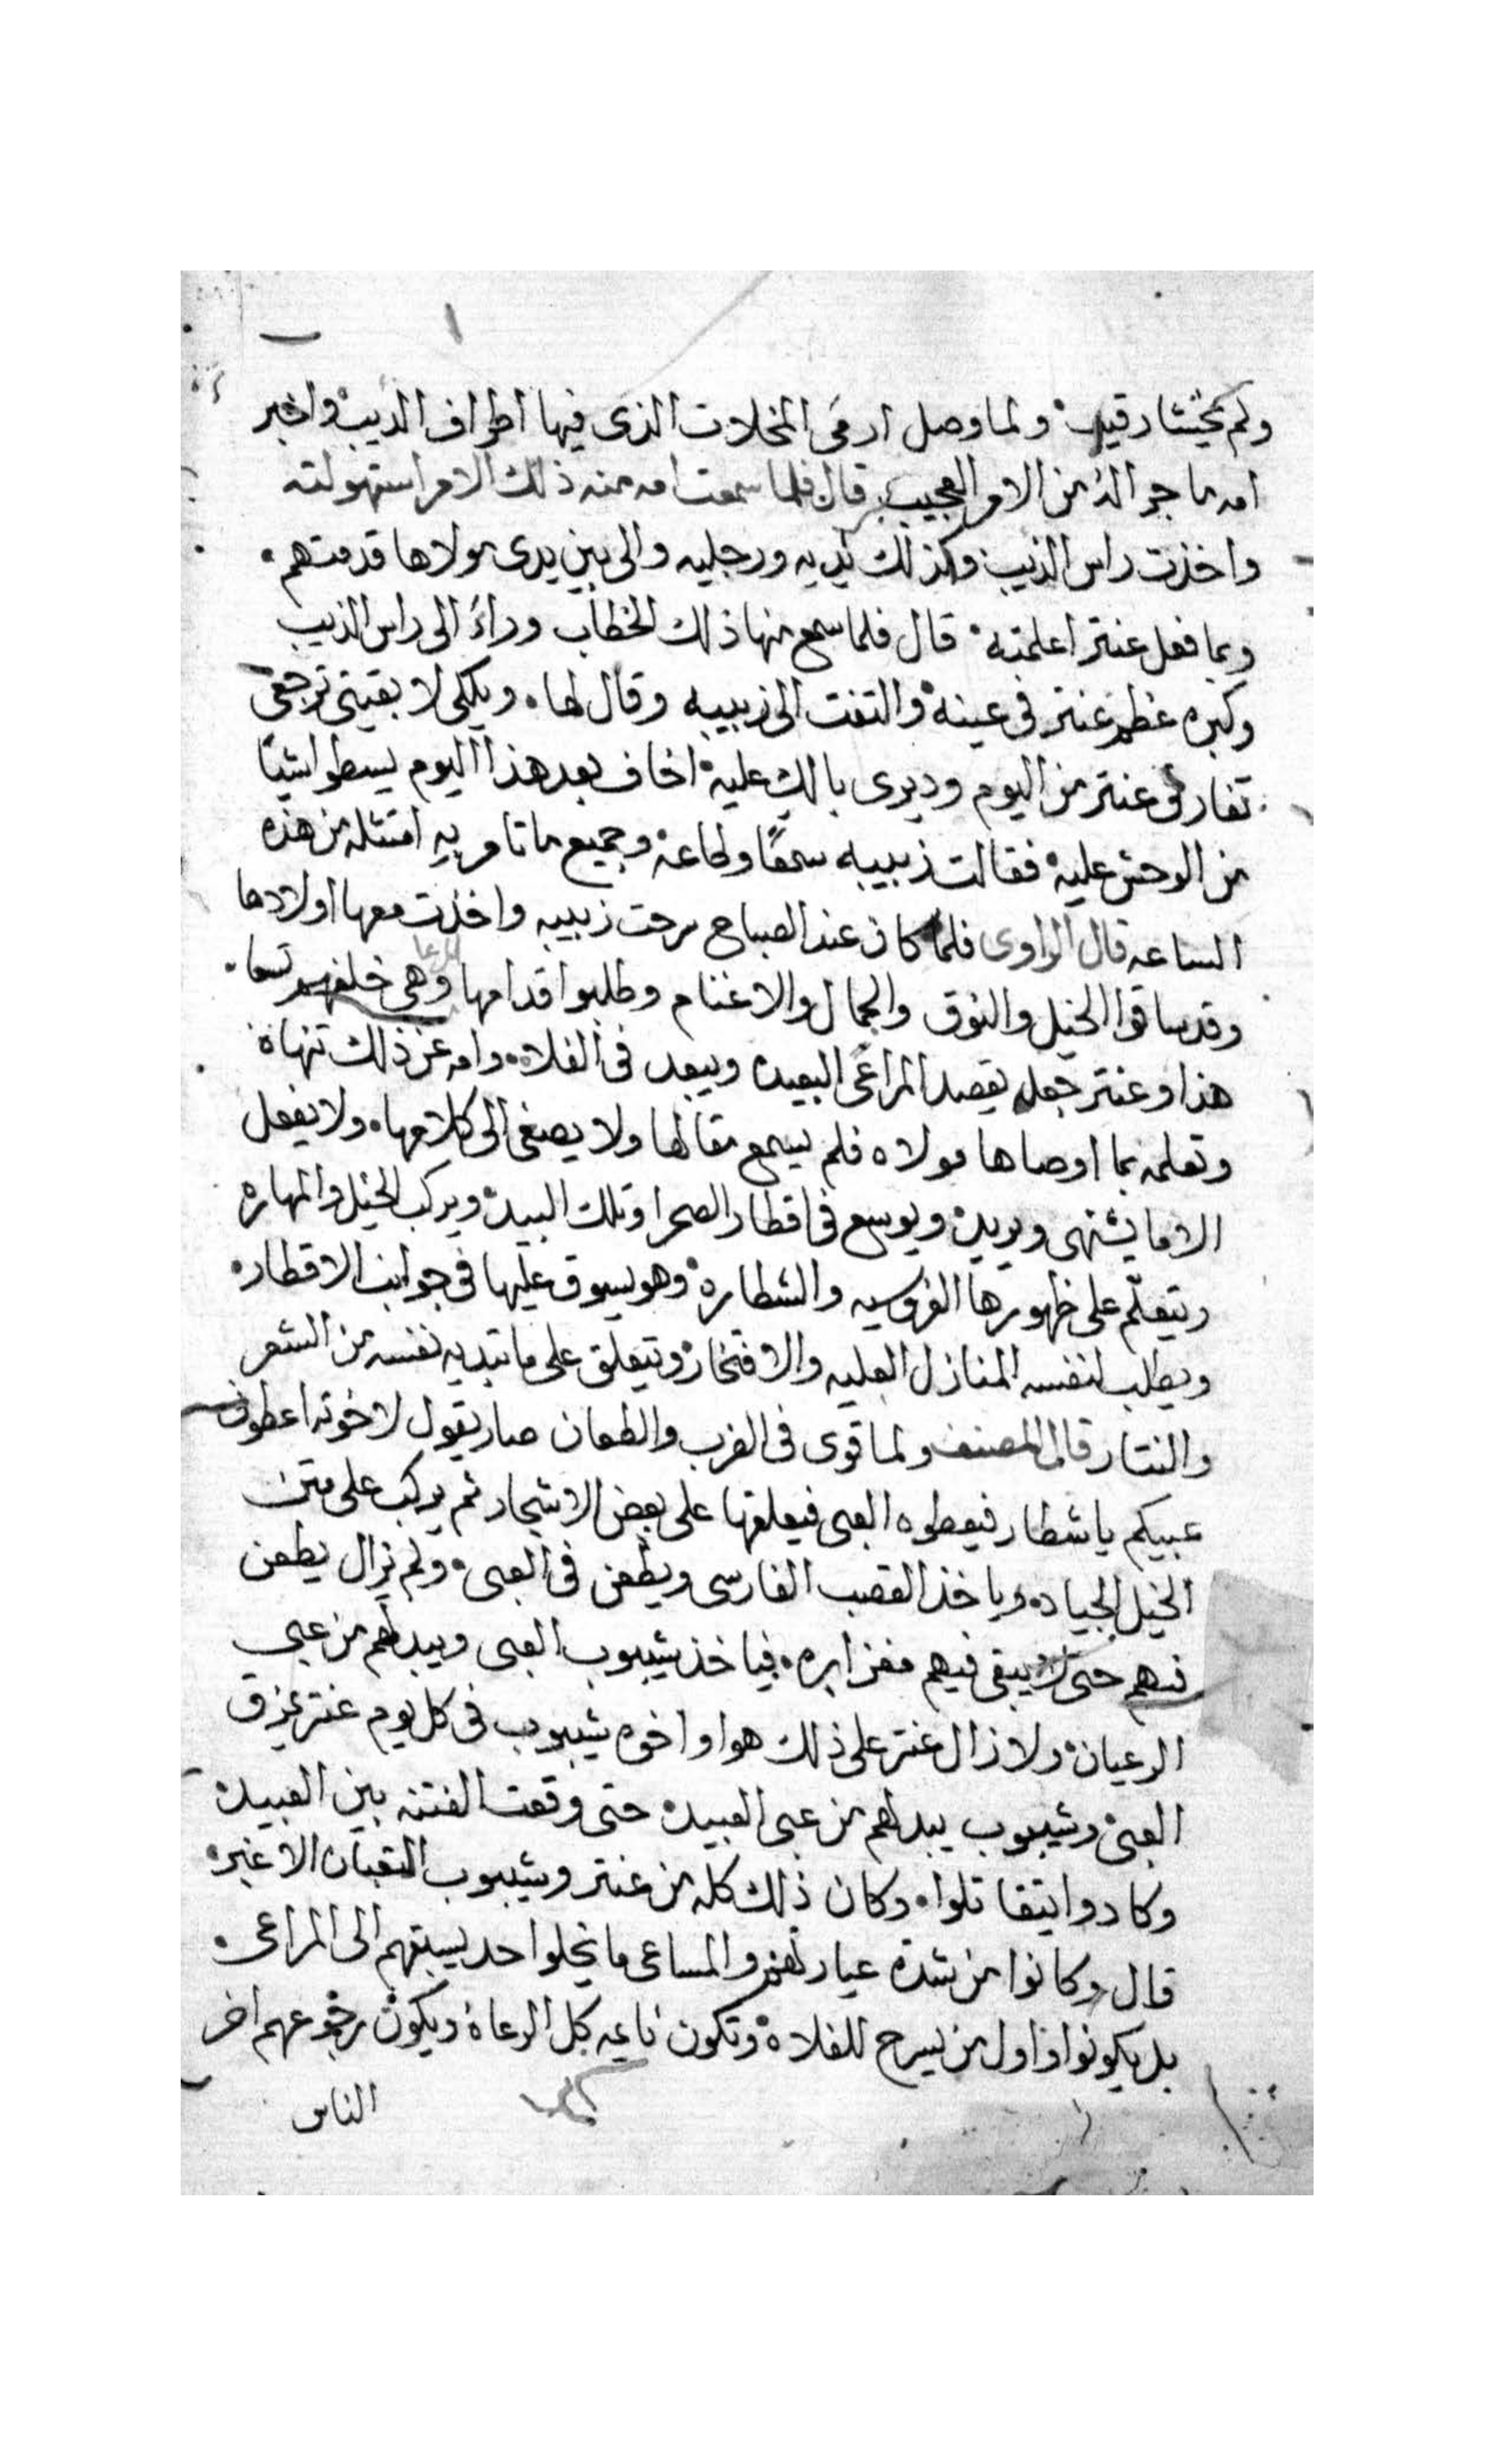 ولم يخشا رقيب ولما وصل ارمى المخلات الذى فيها اطراف الديب واخبر
امه ما جرا له من الامر العجيب قال فلما سمعت امه منه ذلك الامر استهولته
واخذت راس الذيب وكذلك يديه ورجليه والى بين يدى مولاها قدمتهم
وبما فعل عنتر اعلمته قال فلما سمع منها ذلك الخطاب وراء الى راس الذيب
وكبره عظم عنتر فى عينه والتفت الى زبيبه وقال لها ويلكى لا بقيتى ترجعى
تفارقى عنتر من اليوم وديرى بالك عليه اخاف بعد هذا اليوم يسطوا شيا
من الوحش عليه فقالت زبيبه سمعًا وطاعه وجميع ما تامر به امتثله من هذه
الساعه قال الراوى فلما كان عند الصباح سرحت زبيبه واخذت معها اولادها
وقد ساقوا الخيل والنوق والجمال والاغنام وطلبوا قدامها المرعا وهى خلفهم تسعا
هذا وعنتر جعل يقصد المراعى البعيده ويبعد فى الفلاه وامه عن ذلك تنهاه
وتعلمه بما اوصاها مولاه فلم يسمع مقالها ولا يصغى الى كلامها ولا يفعل
الا ما يشتهى ويريد ويوسع فى اقطار الصحرا وتلك البيد ويركب الخيل والمهاره
ويتعلم على ظهورها الفروسيه والشطاره وهو يسوق عليها فى جوانب الاقطار
ويطلب لنفسه المنازل العليه والافتخار ويتعلق على ما تبديه نفسه من الشعر
والنثار قال المصنف ولما قوى فى الضرب والطعان صار يقول لاخوته اعطونى
عبيكم يا شطار فيعطوه العبى فيعلقها على بعض الاشجار ثم يركب على متن
الخيل الجياد وياخذ القصب الفارسى ويطعن فى العبى ولم يزال يطعن
فيهم حتى لا يبقى فيهم مغز ابره فياخذ شيبوب العبى ويبدلهم من عبى
الرعيان ولا زال عنتر على ذلك هوا واخوه شيبوب فى كل يوم عنتر يمزق
العبى وشيبوب يبدلهم من عبى العبيد حتى وقعت الفتنه بين العبيد
وكادوا يتقاتلوا وكان ذلك كله من عنتر وشيبوب الثعبان الاغبر
قال وكانوا من شدة عيارتهم والمساعى ما يخلوا احد يسبقهم الى المراعى
بل يكونوا اول من يسرح للفلاه وتكون نايمه كل الرعاة ويكون رجوعهم اخر
الناس